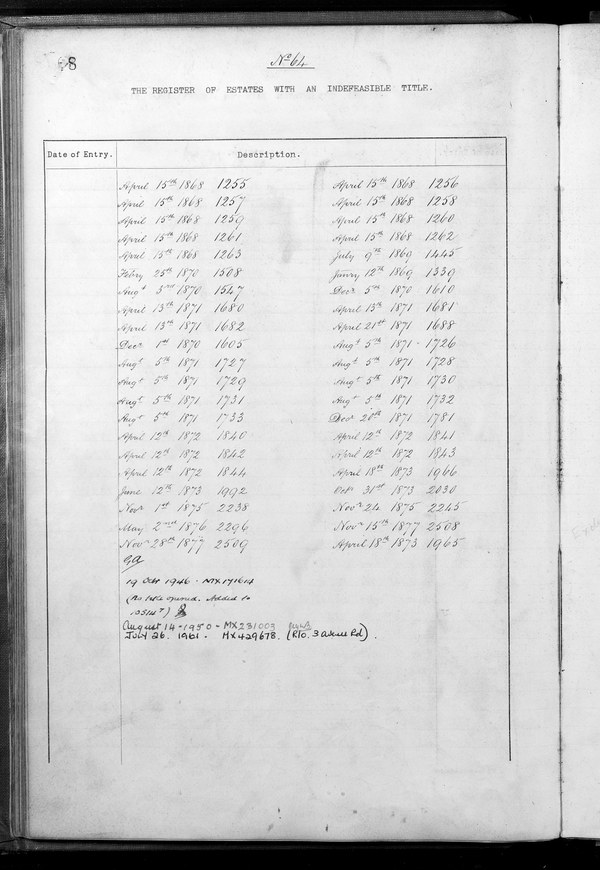 8
No 64
THE REGISTER OF ESTATES WITH AN INDEFEASIBLE TITLE.
Date of Entry. Description.
April 15th 1868 1255 April 15th 1868 1256
April 15th 1868 1257 April 15th 1868 1258
April 15th 1868 1259 April 15th 1868 1260
April 15th 1868 1261 April 15th 1868 1262
April 15th 1868 1263 July 9th 1869 1445
Febry 25th 1870 1508 Janry 12th 1869 1339
Augt 3rd 1870 1547 Decr 5th 1870 1610
April 13th 1871 1680 April 13th 1871 1681
April 13th 1871 1682 April 21st 1871 1688
Decr 1st 1870 1605 Augt 5th 1871 - 1726
Augt 5th 1871 1727 Augt 5th 1871 1728
Augt 5th 1871 1729 Augt 5th 1871 1730
Augt 5th 1871 1731 Augt 5th 1871 1732
Augt 5th 1871 1733 Decr 20th 1871 1781
April 12th 1872 1840 April 12th 1872 1841
April 12th 1872 1842 April 12th 1872 1843
April 12th 1872 1844 April 18th 1873 1966
June 12th 1873 1992 Octr 31st 1873 2030
Novr 1st 1875 2238 Novr 24 1875 2245
May 2nd 1876 2296 Novr 15th 1877 2508
Novr 28th 1877 2509 April 18th 1873 1965
19 Oct 1946 - MX171614
(No title opened. Added to
13514T)
August 14 - 1950 - MX231003
July 26. 1961. MX429678. (R/O. 3 Rd).